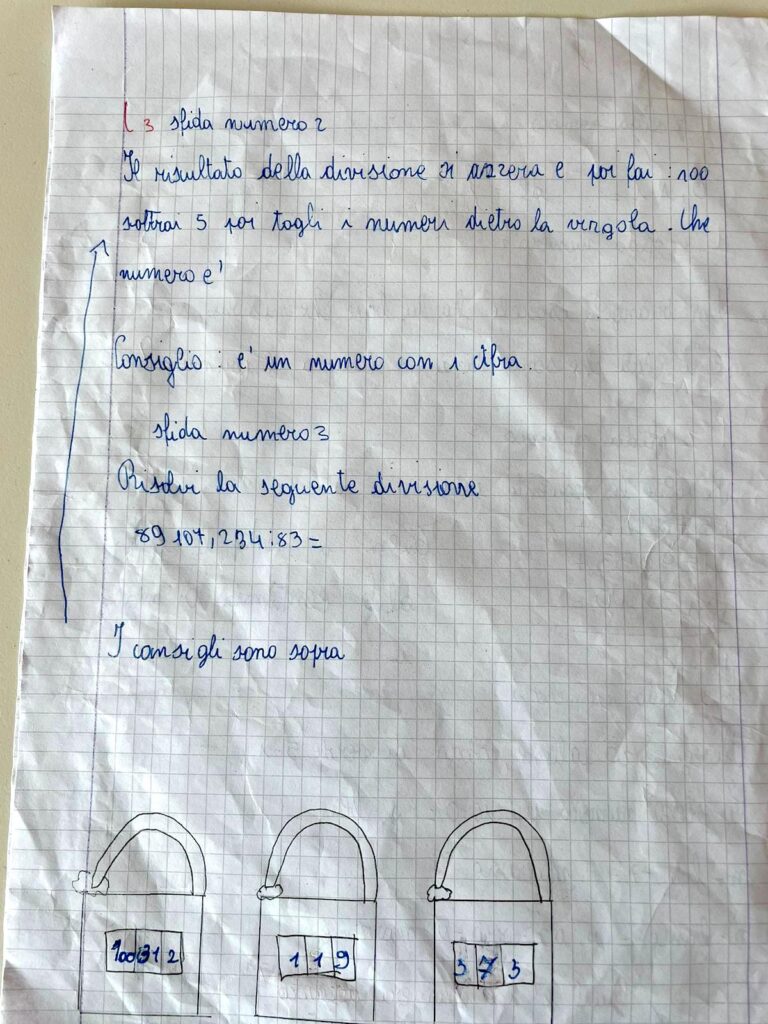 L3 sfida numero 2
Il risultato della divisione si azzera e poi fai : 100
sottrai 5 poi togli i numeri dietro la virgola. Che
numero e'
Consiglio : e' un numero con 1 cifra.
sfida numero 3
Risolvi la seguente divisione
89107,234:83=
I consigli sono sopra
100 312
1 1 9
3 7 5